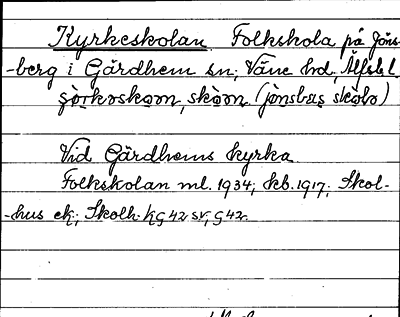 Kyrkeskolan Folkskola på Jöns-
-berg i Gärdhem sn; Väne hd, Älfsb l
(jönsbærs skola)
Vid Gärdhems kyrka
Folkskolan ml. 1934; kb. 1917; Skol-
-hus ek; Skolh. kg 42 sv, g 42.